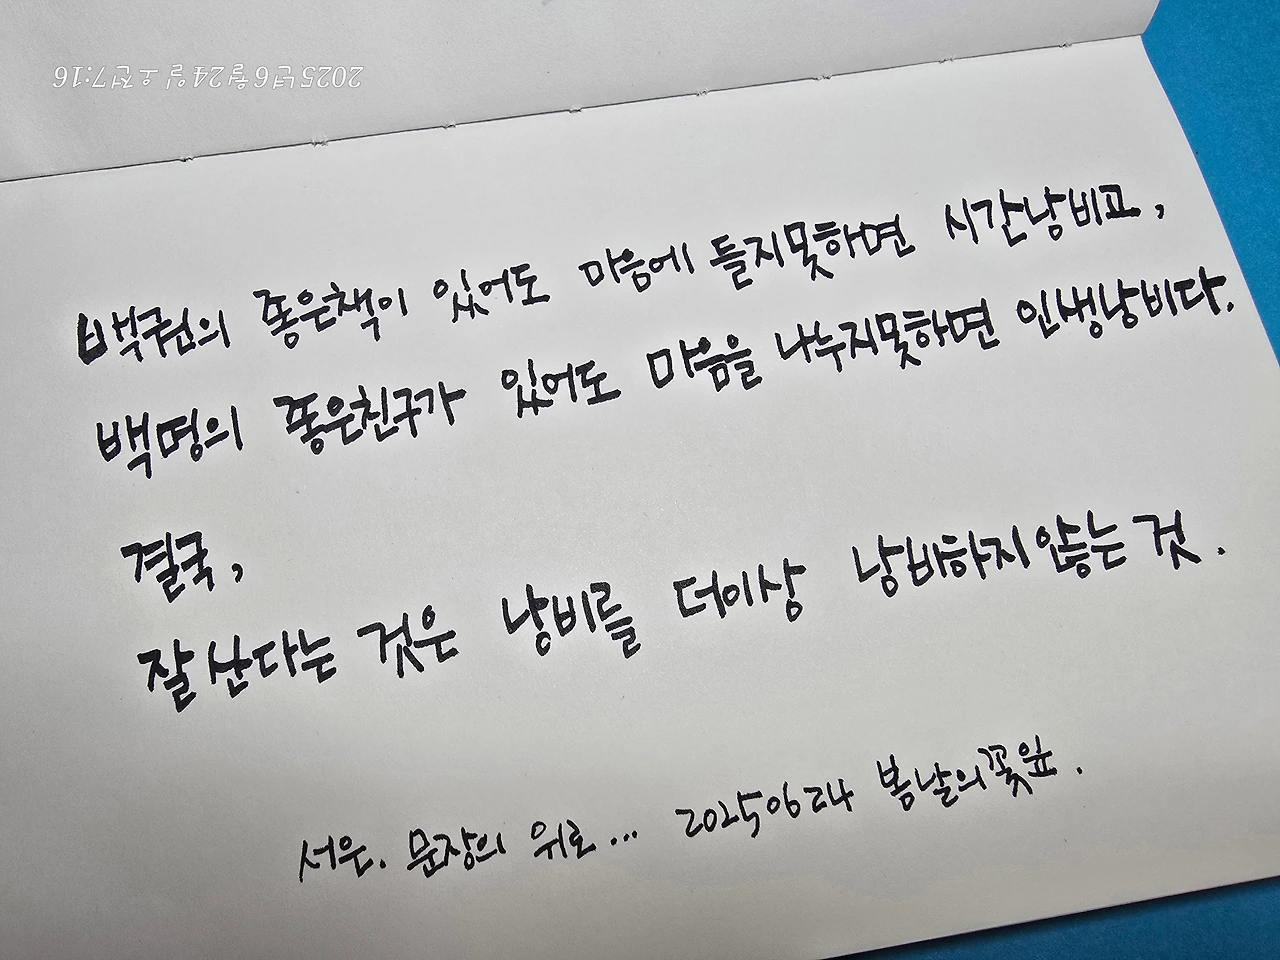 2025년 6월 24일 오전 7:16
백권의 좋은책이 있어도 마음에 들지못하면 시간낭비고,
백명의 좋은친구가 있어도 마음을 나누지못하면 인생낭비다.
결국,
잘 산다는 것은 낭비를 더이상 낭비하지 않는 것.
서운. 문장의 위로... 20250624 봄날의꽃잎.